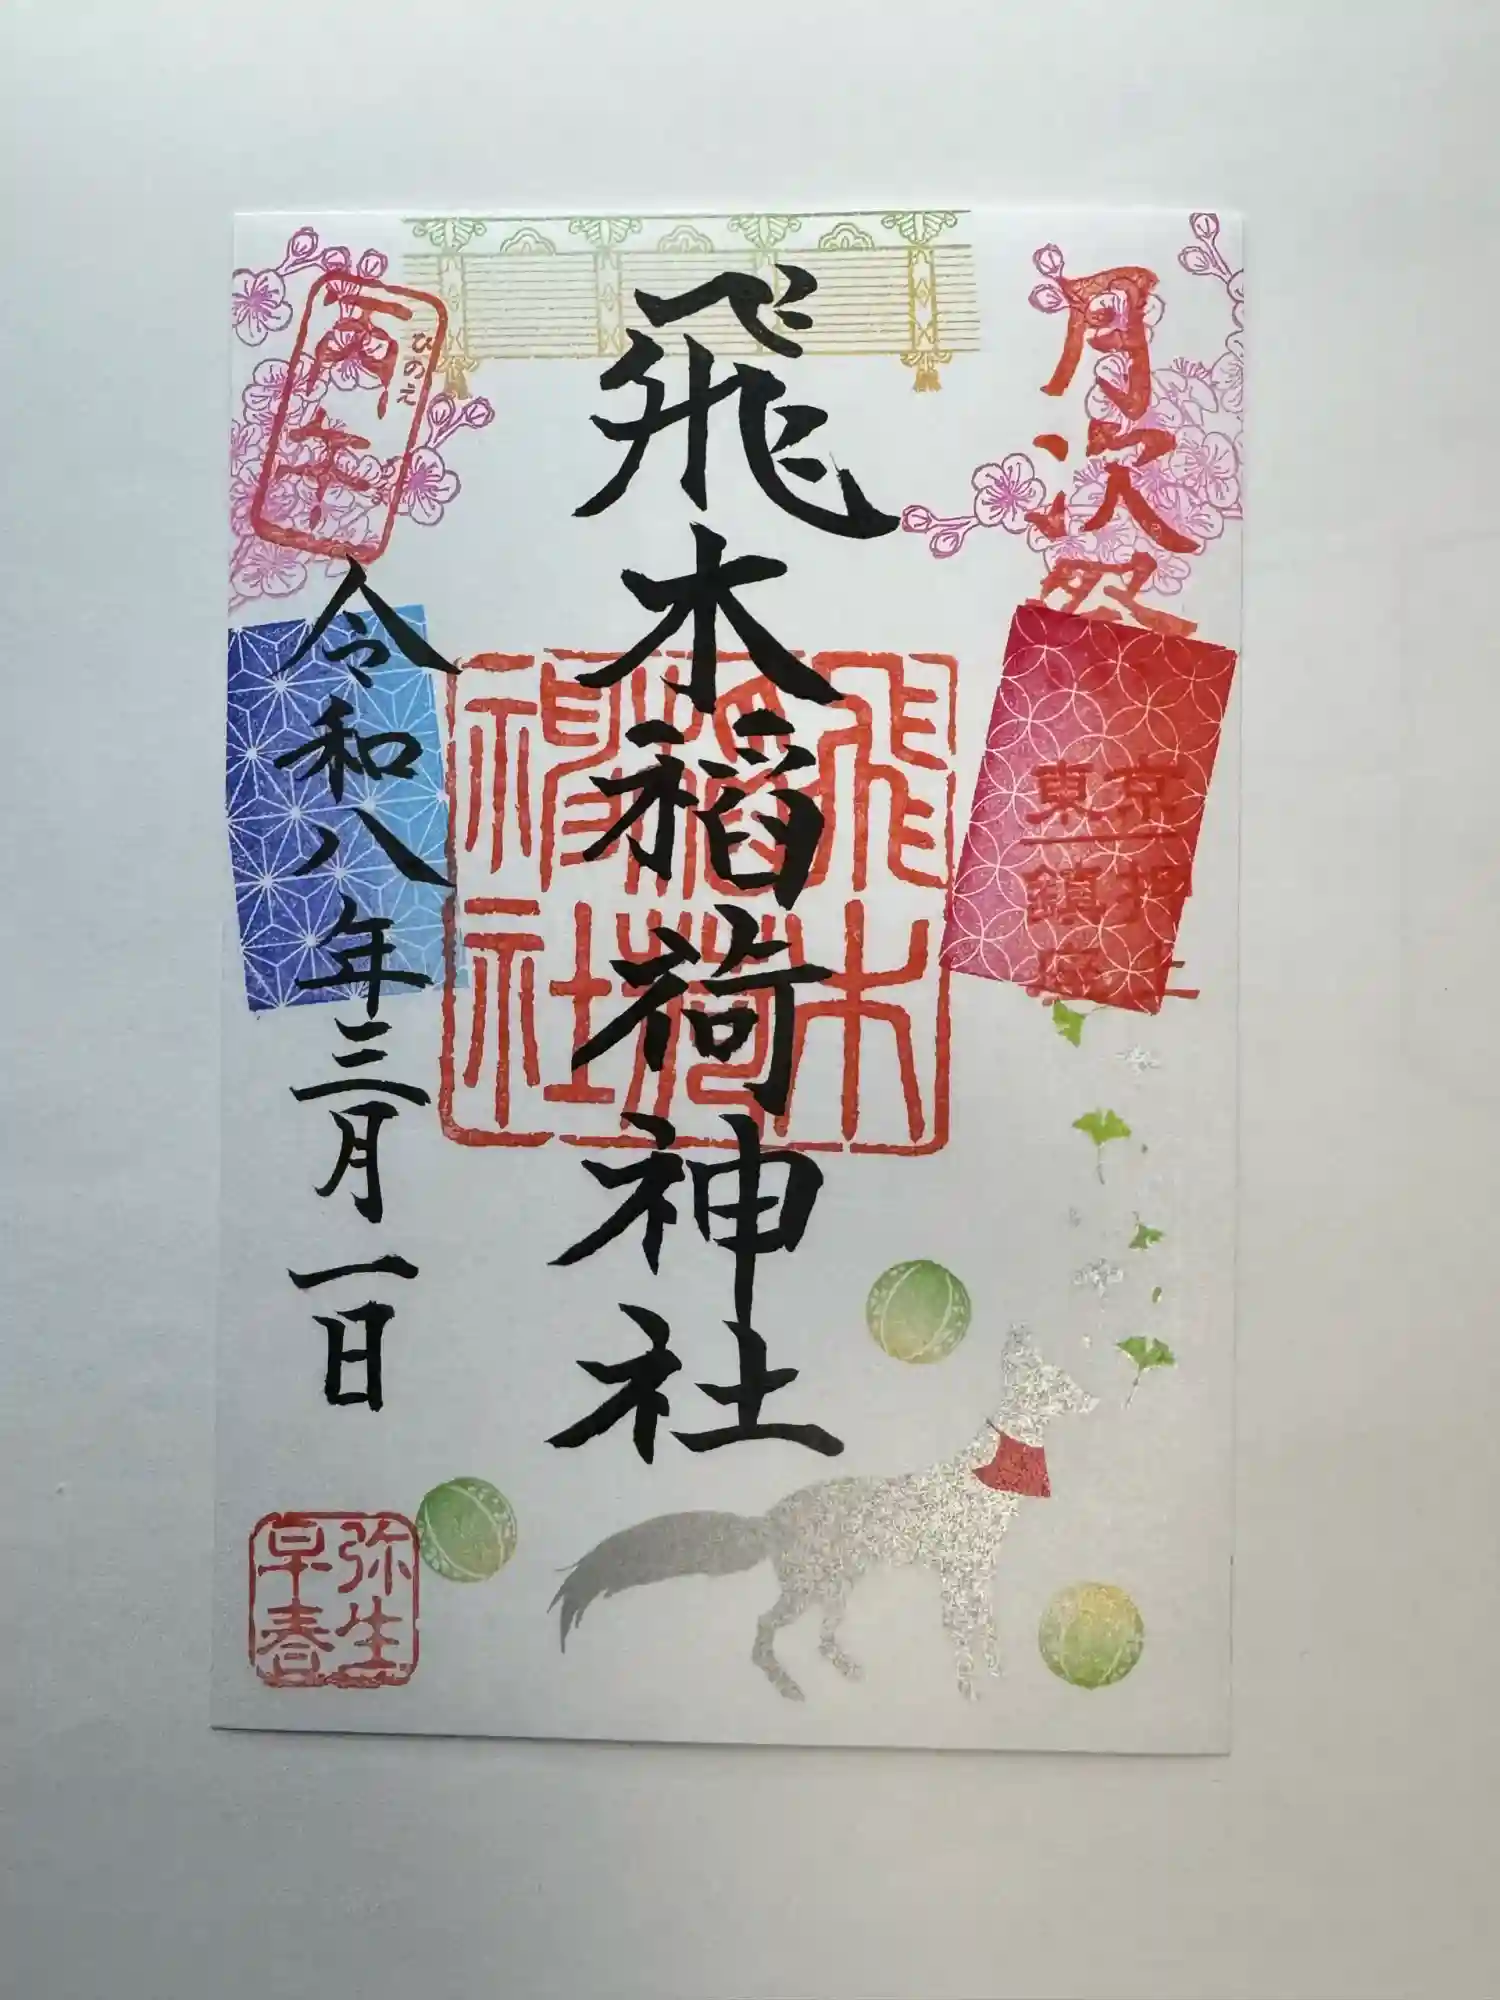 月次祭
東京押上
鎮座
飛木稲荷神社
飛木
稲荷
神社
丙午
ひのえ
令和八年三月一日
弥生
早春